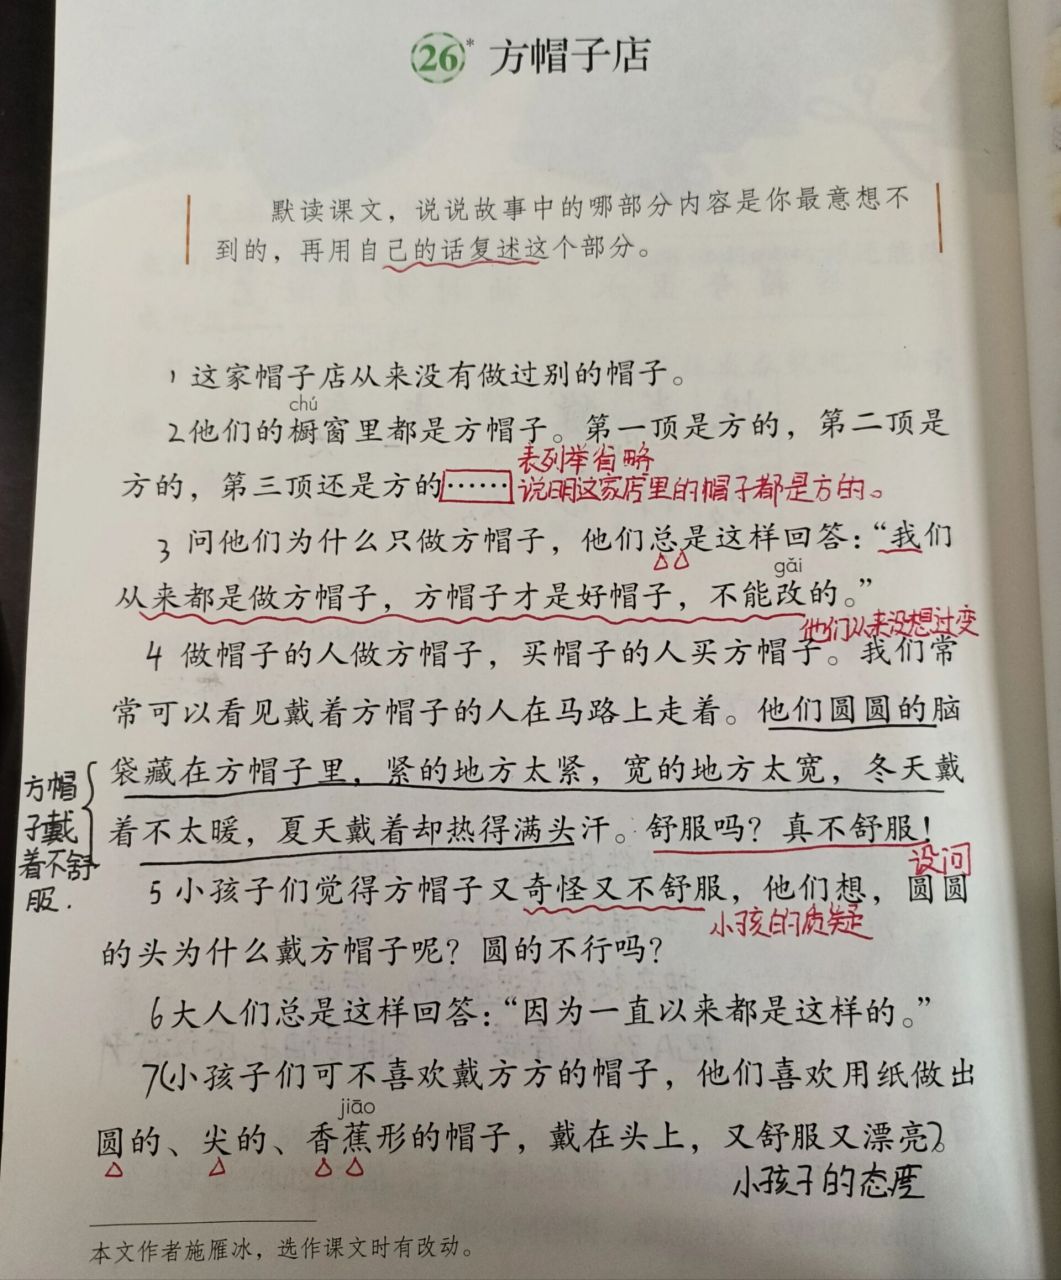 26* 方帽子店
默读课文，说说故事中的哪部分内容是你最意想不
到的，再用自己的话复述这个部分。
1 这家帽子店从来没有做过别的帽子。
chú
2他们的橱窗里都是方帽子。第一顶是方的，第二顶是
表列举省略
方的，第三顶还是方的……
说明这家店里的帽子都是方的。
3 问他们为什么只做方帽子，他们总是这样回答：“我们
gǎi
从来都是做方帽子，方帽子才是好帽子，不能改的。”
他们从来没想过变
4 做帽子的人做方帽子，买帽子的人买方帽子。我们常
常可以看见戴着方帽子的人在马路上走着。他们圆圆的脑
袋藏在方帽子里，紧的地方太紧，宽的地方太宽，冬天戴
着不太暖，夏天戴着却热得满头汗。舒服吗？真不舒服！
方帽
子戴
着不舒
服.
设问
5 小孩子们觉得方帽子又奇怪又不舒服，他们想，圆圆
小孩的质疑
的头为什么戴方帽子呢？圆的不行吗？
6大人们总是这样回答：“因为一直以来都是这样的。”
7(小孩子们可不喜欢戴方方的帽子，他们喜欢用纸做出
jiāo
圆的、尖的、香蕉形的帽子，戴在头上，又舒服又漂亮。)
小孩子的态度
本文作者施雁冰，选作课文时有改动。